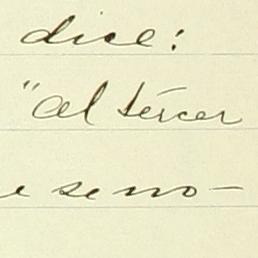 dice:
"al tércer
e se no-